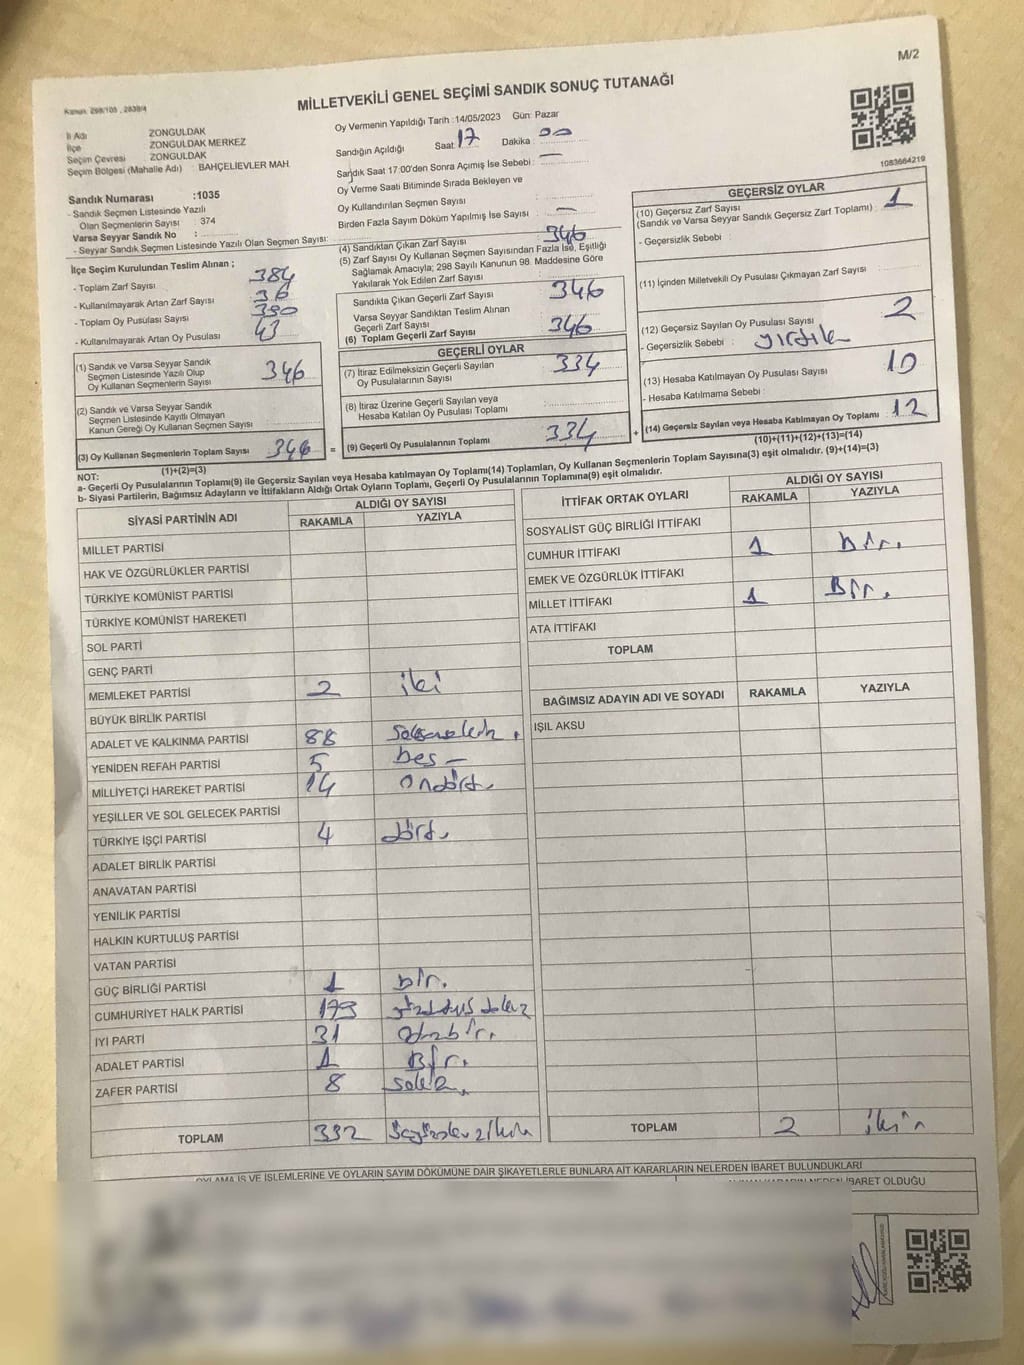 M/2
Kanun: 298/105 , 2839/4
MİLLETVEKİLİ GENEL SEÇİMİ SANDIK SONUÇ TUTANAĞI
İl Adı ZONGULDAK
İlçe ZONGULDAK MERKEZ
Seçim Çevresi ZONGULDAK
Seçim Bölgesi (Mahalle Adı) : BAHÇELİEVLER MAH.
Oy Vermenin Yapıldığı Tarih :14/05/2023 Gün: Pazar
Sandığın Açıldığı Saat: 17 Dakika : 00
Sandık Saat 17:00'den Sonra Açımış İse Sebebi : —
Oy Verme Saati Bitiminde Sırada Bekleyen ve
Oy Kullandırılan Seçmen Sayısı :
Birden Fazla Sayım Döküm Yapılmış İse Sayısı : —
1083664219
Sandık Numarası :1035
- Sandık Seçmen Listesinde Yazılı
Olan Seçmenlerin Sayısı : 374
Varsa Seyyar Sandık No :
- Seyyar Sandık Seçmen Listesinde Yazılı Olan Seçmen Sayısı:
İlçe Seçim Kurulundan Teslim Alınan ;
- Toplam Zarf Sayısı : 384
- Kullanılmayarak Artan Zarf Sayısı : 36
- Toplam Oy Pusulası Sayısı :
- Kullanılmayarak Artan Oy Pusulası : 43
(1) Sandık ve Varsa Seyyar Sandık
Seçmen Listesinde Yazılı Olup
Oy Kullanan Seçmenlerin Sayısı 346
(2) Sandık ve Varsa Seyyar Sandık
Seçmen Listesinde Kayıtlı Olmayan
Kanun Gereği Oy Kullanan Seçmen Sayısı
(3) Oy Kullanan Seçmenlerin Toplam Sayısı 346
(1)+(2)=(3)
(4) Sandıktan Çıkan Zarf Sayısı : 346
(5) Zarf Sayısı Oy Kullanan Seçmen Sayısından Fazla İse, Eşitliği
Sağlamak Amacıyla; 298 Sayılı Kanunun 98. Maddesine Göre
Yakılarak Yok Edilen Zarf Sayısı
Sandıkta Çıkan Geçerli Zarf Sayısı : 346
Varsa Seyyar Sandıktan Teslim Alınan
Geçerli Zarf Sayısı
(6) Toplam Geçerli Zarf Sayısı : 346
GEÇERLİ OYLAR
(7) İtiraz Edilmeksizin Geçerli Sayılan
Oy Pusulalarının Sayısı 334
(8) İtiraz Üzerine Geçerli Sayılan veya
Hesaba Katılan Oy Pusulası Toplamı
= (9) Geçerli Oy Pusulalarının Toplamı 334 +
GEÇERSİZ OYLAR
(10) Geçersiz Zarf Sayısı
(Sandık ve Varsa Seyyar Sandık Geçersiz Zarf Toplamı) : 1
- Geçersizlik Sebebi :
(11) İçinden Milletvekili Oy Pusulası Çıkmayan Zarf Sayısı
(12) Geçersiz Sayılan Oy Pusulası Sayısı : 2
- Geçersizlik Sebebi : yırtık
(13) Hesaba Katılmayan Oy Pusulası Sayısı 10
- Hesaba Katılmama Sebebi :
(14) Geçersiz Sayılan veya Hesaba Katılmayan Oy Toplamı : 12
(10)+(11)+(12)+(13)=(14)
NOT:
a- Geçerli Oy Pusulalarının Toplamı(9) ile Geçersiz Sayılan veya Hesaba katılmayan Oy Toplamı(14) Toplamları, Oy Kullanan Seçmenlerin Toplam Sayısına(3) eşit olmalıdır. (9)+(14)=(3)
b- Siyasi Partilerin, Bağımsız Adayların ve İttifakların Aldığı Ortak Oyların Toplamı, Geçerli Oy Pusulalarının Toplamına(9) eşit olmalıdır.
SİYASİ PARTİNİN ADI ALDIĞI OY SAYISI
RAKAMLA YAZIYLA
MİLLET PARTİSİ
HAK VE ÖZGÜRLÜKLER PARTİSİ
TÜRKİYE KOMÜNİST PARTİSİ
TÜRKİYE KOMÜNİST HAREKETİ
SOL PARTİ
GENÇ PARTİ
MEMLEKET PARTİSİ 2 iki
BÜYÜK BİRLİK PARTİSİ
ADALET VE KALKINMA PARTİSİ 88
YENİDEN REFAH PARTİSİ 5 beş
MİLLİYETÇİ HAREKET PARTİSİ 14 ondört
YEŞİLLER VE SOL GELECEK PARTİSİ
TÜRKİYE İŞÇİ PARTİSİ 4 dört
ADALET BİRLİK PARTİSİ
ANAVATAN PARTİSİ
YENİLİK PARTİSİ
HALKIN KURTULUŞ PARTİSİ
VATAN PARTİSİ
GÜÇ BİRLİĞİ PARTİSİ 1 bir.
CUMHURİYET HALK PARTİSİ
İYİ PARTİ 31 otuzbir.
ADALET PARTİSİ 1 Bir.
ZAFER PARTİSİ 8 sekiz
TOPLAM 332
İTTİFAK ORTAK OYLARI ALDIĞI OY SAYISI
RAKAMLA YAZIYLA
SOSYALİST GÜÇ BİRLİĞİ İTTİFAKI
CUMHUR İTTİFAKI 1 bir.
EMEK VE ÖZGÜRLÜK İTTİFAKI
MİLLET İTTİFAKI 1 Bir.
ATA İTTİFAKI
TOPLAM
BAĞIMSIZ ADAYIN ADI VE SOYADI RAKAMLA YAZIYLA
IŞIL AKSU
TOPLAM 2 iki
OYLAMA İŞ VE İŞLEMLERİNE VE OYLARIN SAYIM DÖKÜMÜNE DAİR ŞİKAYETLERLE BUNLARA AİT KARARLARIN NELERDEN İBARET BULUNDUKLARI
İBARET OLDUĞU